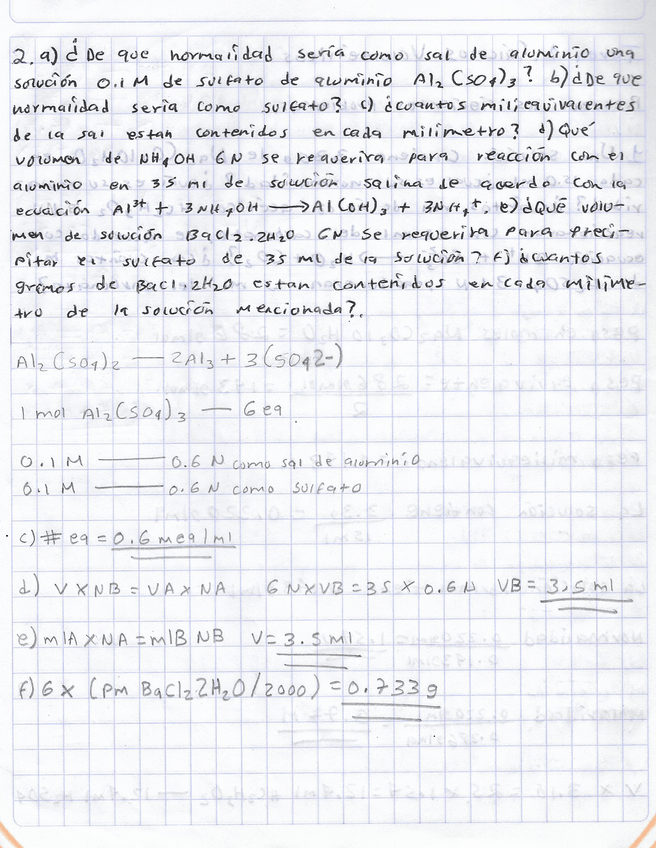 2. a) ¿De que normalidad sería como sal de aluminio una
solución 0.1 M de sulfato de aluminio Al2(SO4)3? b) ¿De que
normalidad seria como sulfato? c) ¿cuantos miliequivalentes
de la sal estan contenidos en cada milimetro? d) Qué
volumen de NH4OH 6N se requerira para reacción con el
aluminio en 35 ml de solución salina de acuerdo con la
ecuación Al3+ + 3NH4OH → Al(OH)3 + 3NH4+. e) ¿Qué volu-
men de solución BaCl2.2H2O 6N se requerira para preci-
pitar el sulfato de 35 ml de la solución? f) ¿cuantos
gramos de BaCl.2H2O estan contenidos en cada milime-
tro de la solución mencionada?.
Al2(SO4)2 — 2Al3 + 3(SO42-)
1 mol Al2(SO4)3 — 6 eq.
0.1 M — 0.6 N como sal de aluminio
0.1 M — 0.6 N como sulfato
c) # eq = 0.6 meq/ml
d) V X NB = VA X NA 6 N X VB = 35 X 0.6 N VB = 3.5 ml
e) mlA X NA = mlB NB V = 3.5 ml
f) 6 X (Pm BaCl2 2H2O/2000) = 0.733 g